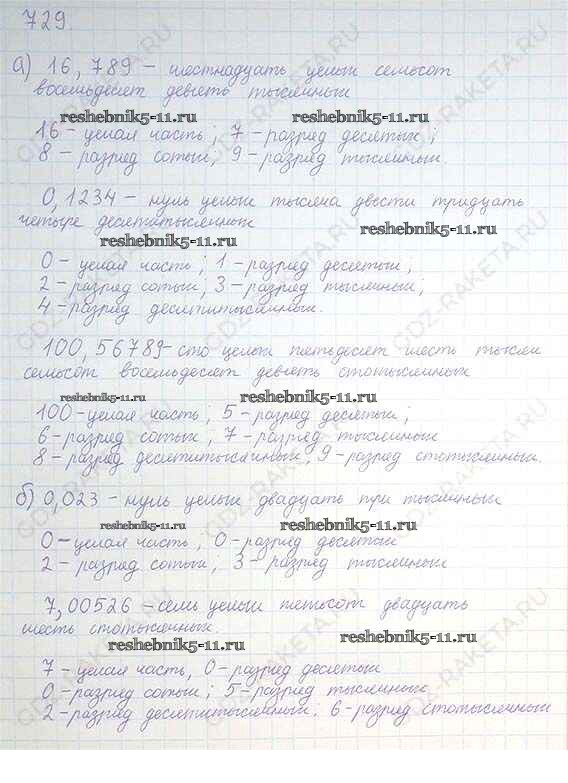 729.
а) 16,789 – шестнадцать целых семьсот
восемьдесят девять тысячных
reshebnik5-11.ru reshebnik5-11.ru
16 – целая часть; 7 – разряд десятых;
8 – разряд сотых; 9 – разряд тысячных.
0,1234 – нуль целых тысяча двести тридцать
четыре десятитысячных
reshebnik5-11.ru reshebnik5-11.ru
0 – целая часть; 1 – разряд десятых;
2 – разряд сотых; 3 – разряд тысячных;
4 – разряд десятитысячных.
100,56789 – сто целых пятьдесят шесть тысяч
семьсот восемьдесят девять стотысячных
reshebnik5-11.ru reshebnik5-11.ru
100 – целая часть; 5 – разряд десятых;
6 – разряд сотых, 7 – разряд тысячных
8 – разряд десятитысячных, 9 – разряд стотысячных.
б) 0,023 – нуль целых двадцать три тысячных
reshebnik5-11.ru reshebnik5-11.ru
0 – целая часть, 0 – разряд десятых
2 – разряд сотых, 3 – разряд тысячных
7,00526 – семь целых пятьсот двадцать
шесть стотысячных.
reshebnik5-11.ru reshebnik5-11.ru
7 – целая часть, 0 – разряд десятых
0 – разряд сотых; 5 – разряд тысячных
2 – разряд десятитысячных. 6 – разряд стотысячных
GDZ-RAKETA.RU